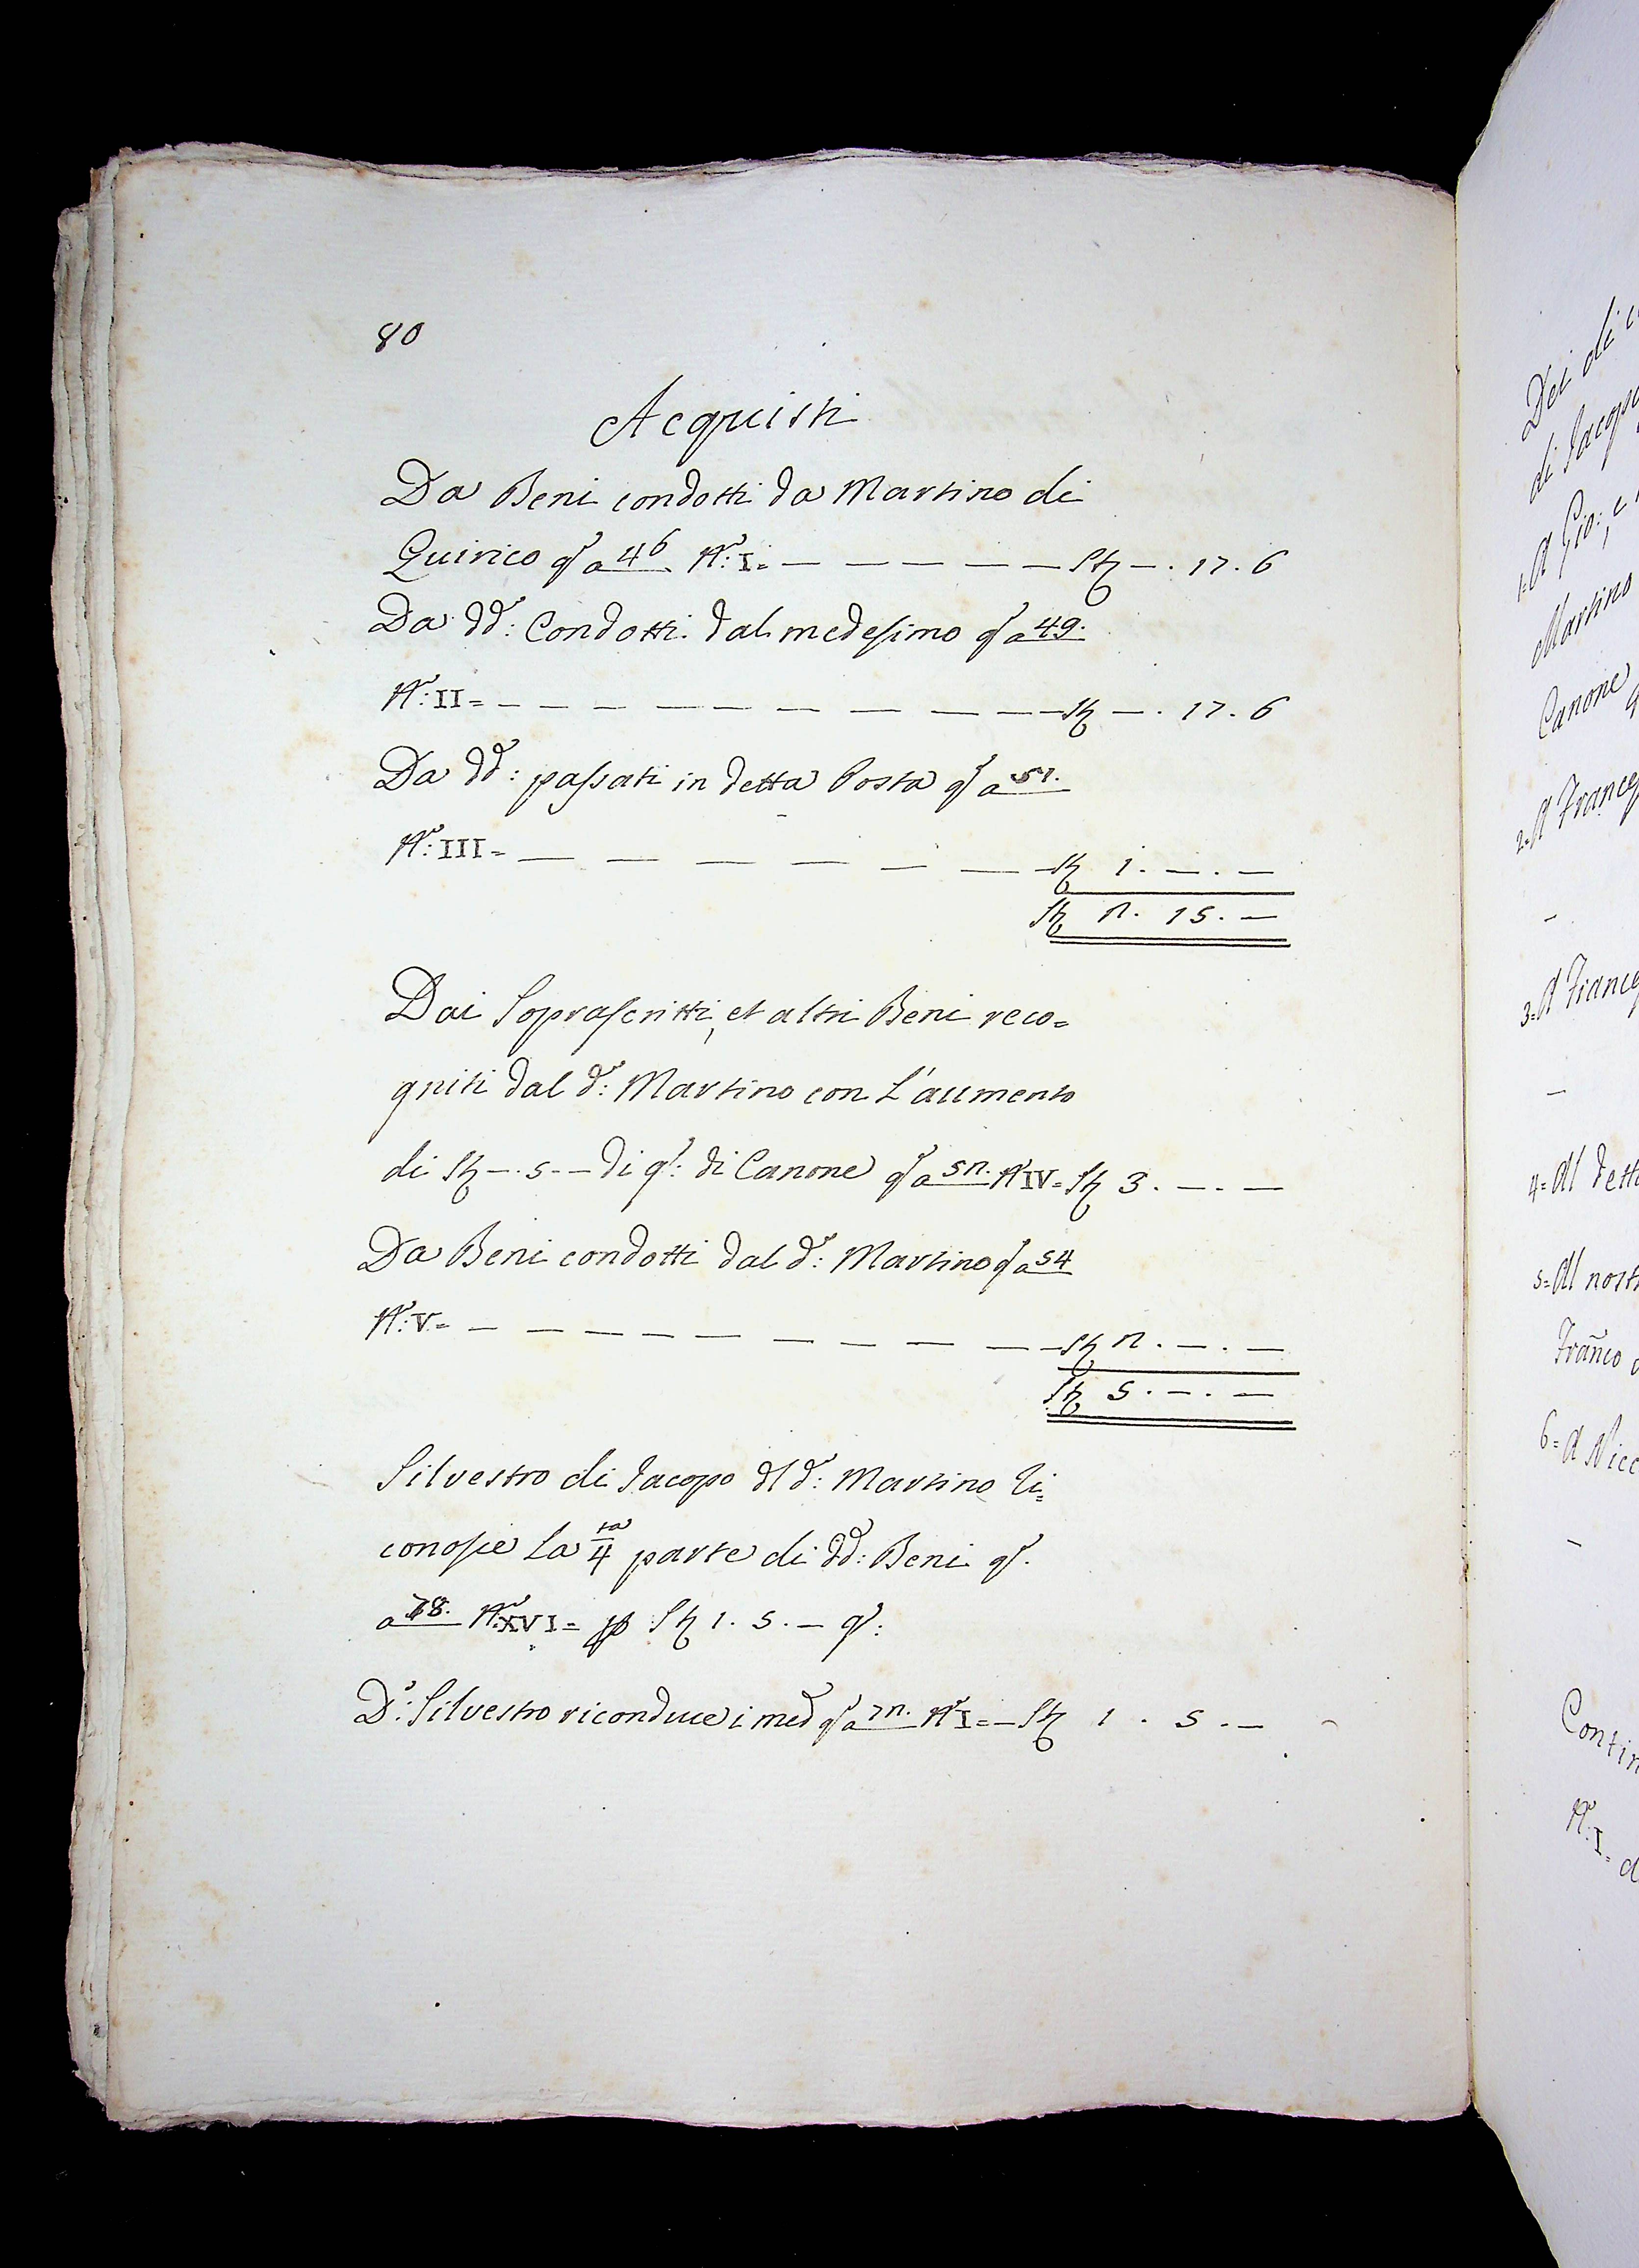 80
Acquisti
Da Beni condotti da Martino di
Quirico qᵗ a 46 Nº: I = — — — — — — St — . 17 . 6
Da dd: Condotti dal medesimo qᵗ a 49.
Nº: II = — — — — — — — — — — St — . 17 . 6
Da dd: passati in detta Posta qᵗ a 51.
Nº: III = — — — — — — St 1 . — . —
St 2 . 15 . —
Dai Soprascritti, et altri Beni reco=
gniti dal d: Martino con L'aumento
di St — . 5 . — di qᵗ: di Canone qᵗ a 52. Nº IV = St 3 . — . —
Da Beni condotti dal d: Martino qᵗ a 54
Nº: V = — — — — — — — — — St 2 . — . —
St 5 . — . —
Silvestro di Jacopo dl d: Martino Ri=
conosce La 4ᵗᵃ parte di dd: Beni qᵗ.
a 78. Nº XVI = p St 1 . 5 . — qᵗ:
D: Silvestro riconduce i med qᵗ a 72. Nº I = — St 1 . 5 . —
Dei di
di Jacopo
1= A Gio:, e
Martino
Canone
2= A Franc
3= A Franc
4= Al dett
5= Al nost
Franco
6= A Nicc
Contin
Nº: I =